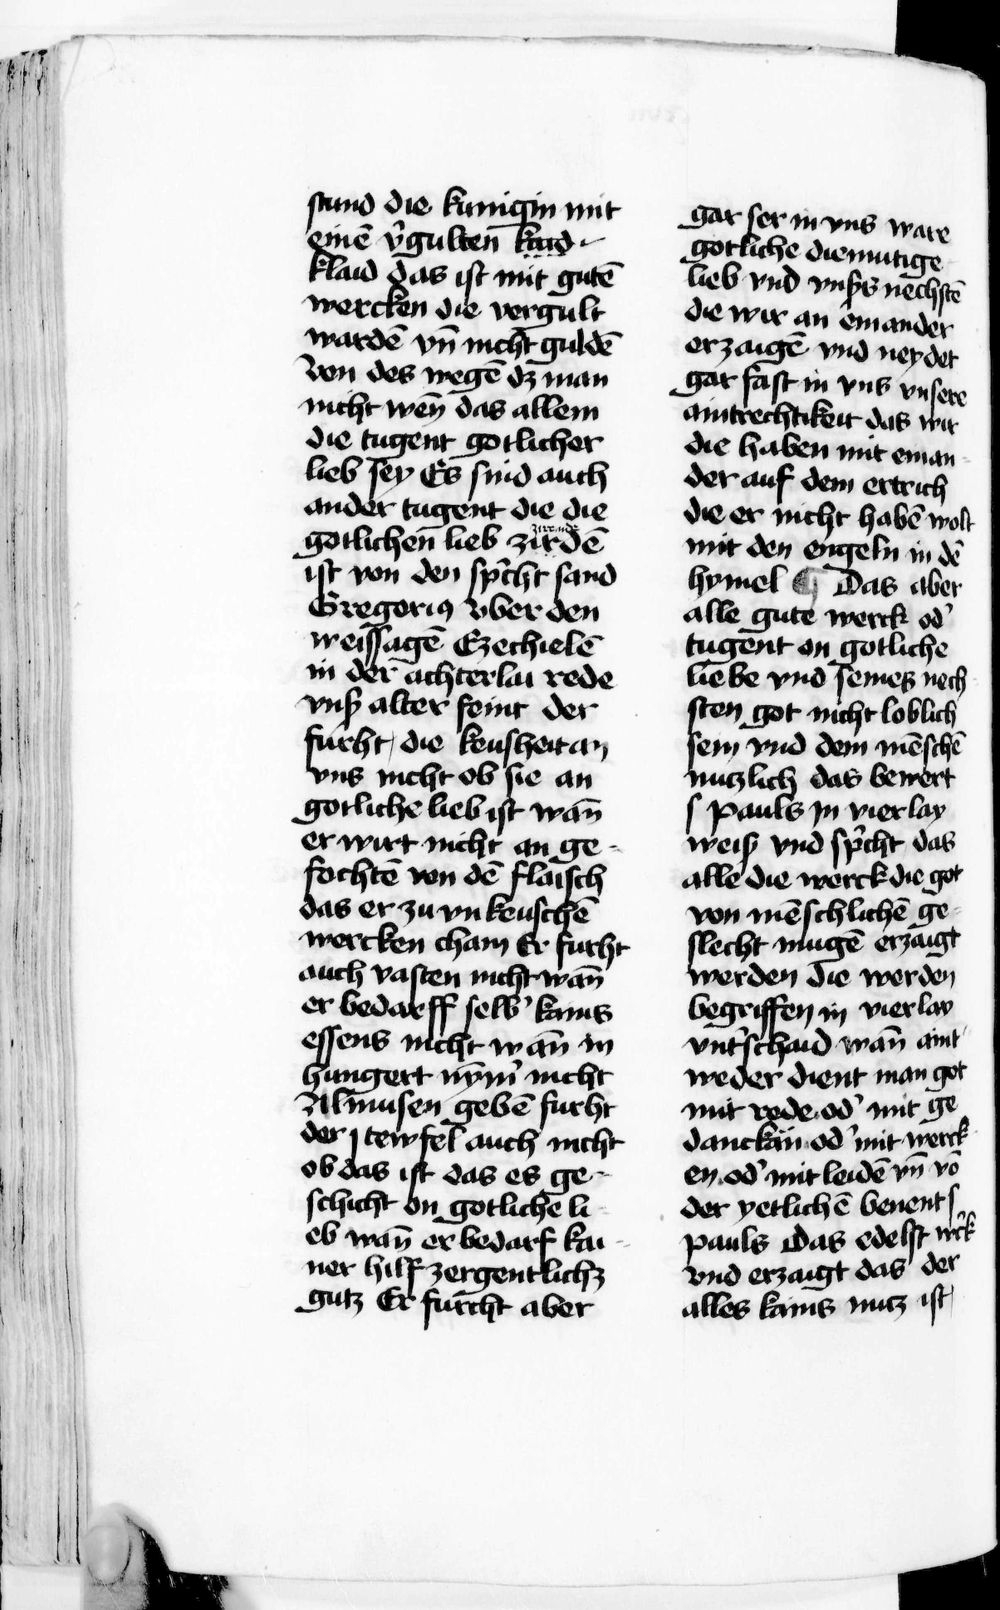 stund die kunigin mit
einē v̓gulten kaid
klaid das ist mit gutē
wercken die vergult
wardē vn̄ nicht guldē
Von des wegē dz man
nicht wen̄ das allein
die tugent gotlicher
lieb sey Es sind auch
ander tugent die die
gotlichen lieb zirdē
ist von den sp̓cht sand
Gregoriꝯ vber den
weissagē Ezechielē
in der achterlai rede
vnß alter feint der
fürht die keusheit an
vns nicht ob sie an
gotliche lieb ist wan̄
er wirt nicht an ge-
fochtē von dē flaisch
das er zu vnkeuschē
wercken cham Er furht
auch vasten nicht wan̄
er bedarff selb̓ kains
essens nicht wan̄ in
hungert nym̄̓ nicht
Almusen gebē furht
der tewfel auch nicht
ob das ist das es ge-
schicht on gotliche li-
eb wan̄ er bedarf kai-
ner hilf zergentlichz
gutz Er fürcht aber
gar ser in vns ware
gotliche diemutige
lieb vnd vnßs nechstē
die wir an einander
erzaigē vnd neydet
gar fast in vns vnsere
aintrechtikeit das wir
die haben mit einan-
der auf dem ertrich
die er nicht habē wolt
mit den engeln in dē
hymel ¶ Das aber
alle gute werck od̓
tugent on gotliche
liebe vnd seines nech-
sten got nicht loblich
sein vnd dem mēschē
nutzlich das bewert
s pauls in vierlay
weiß vnd sp̓cht das
alle die werck die got
von mēschlichē ge-
slecht mugē erzaigt
werden die werden
begriffen in vierlay
vnt̓schaid wan̄ aint-
weder dient man got
mit rede od̓ mit ge
danckän od̓ mit werck
en od̓ mit leidē vn̄ vō
der yetlichē benent s
pauls Das edelst w̓ck
vnd erzaigt das der
alles kains nutz ist